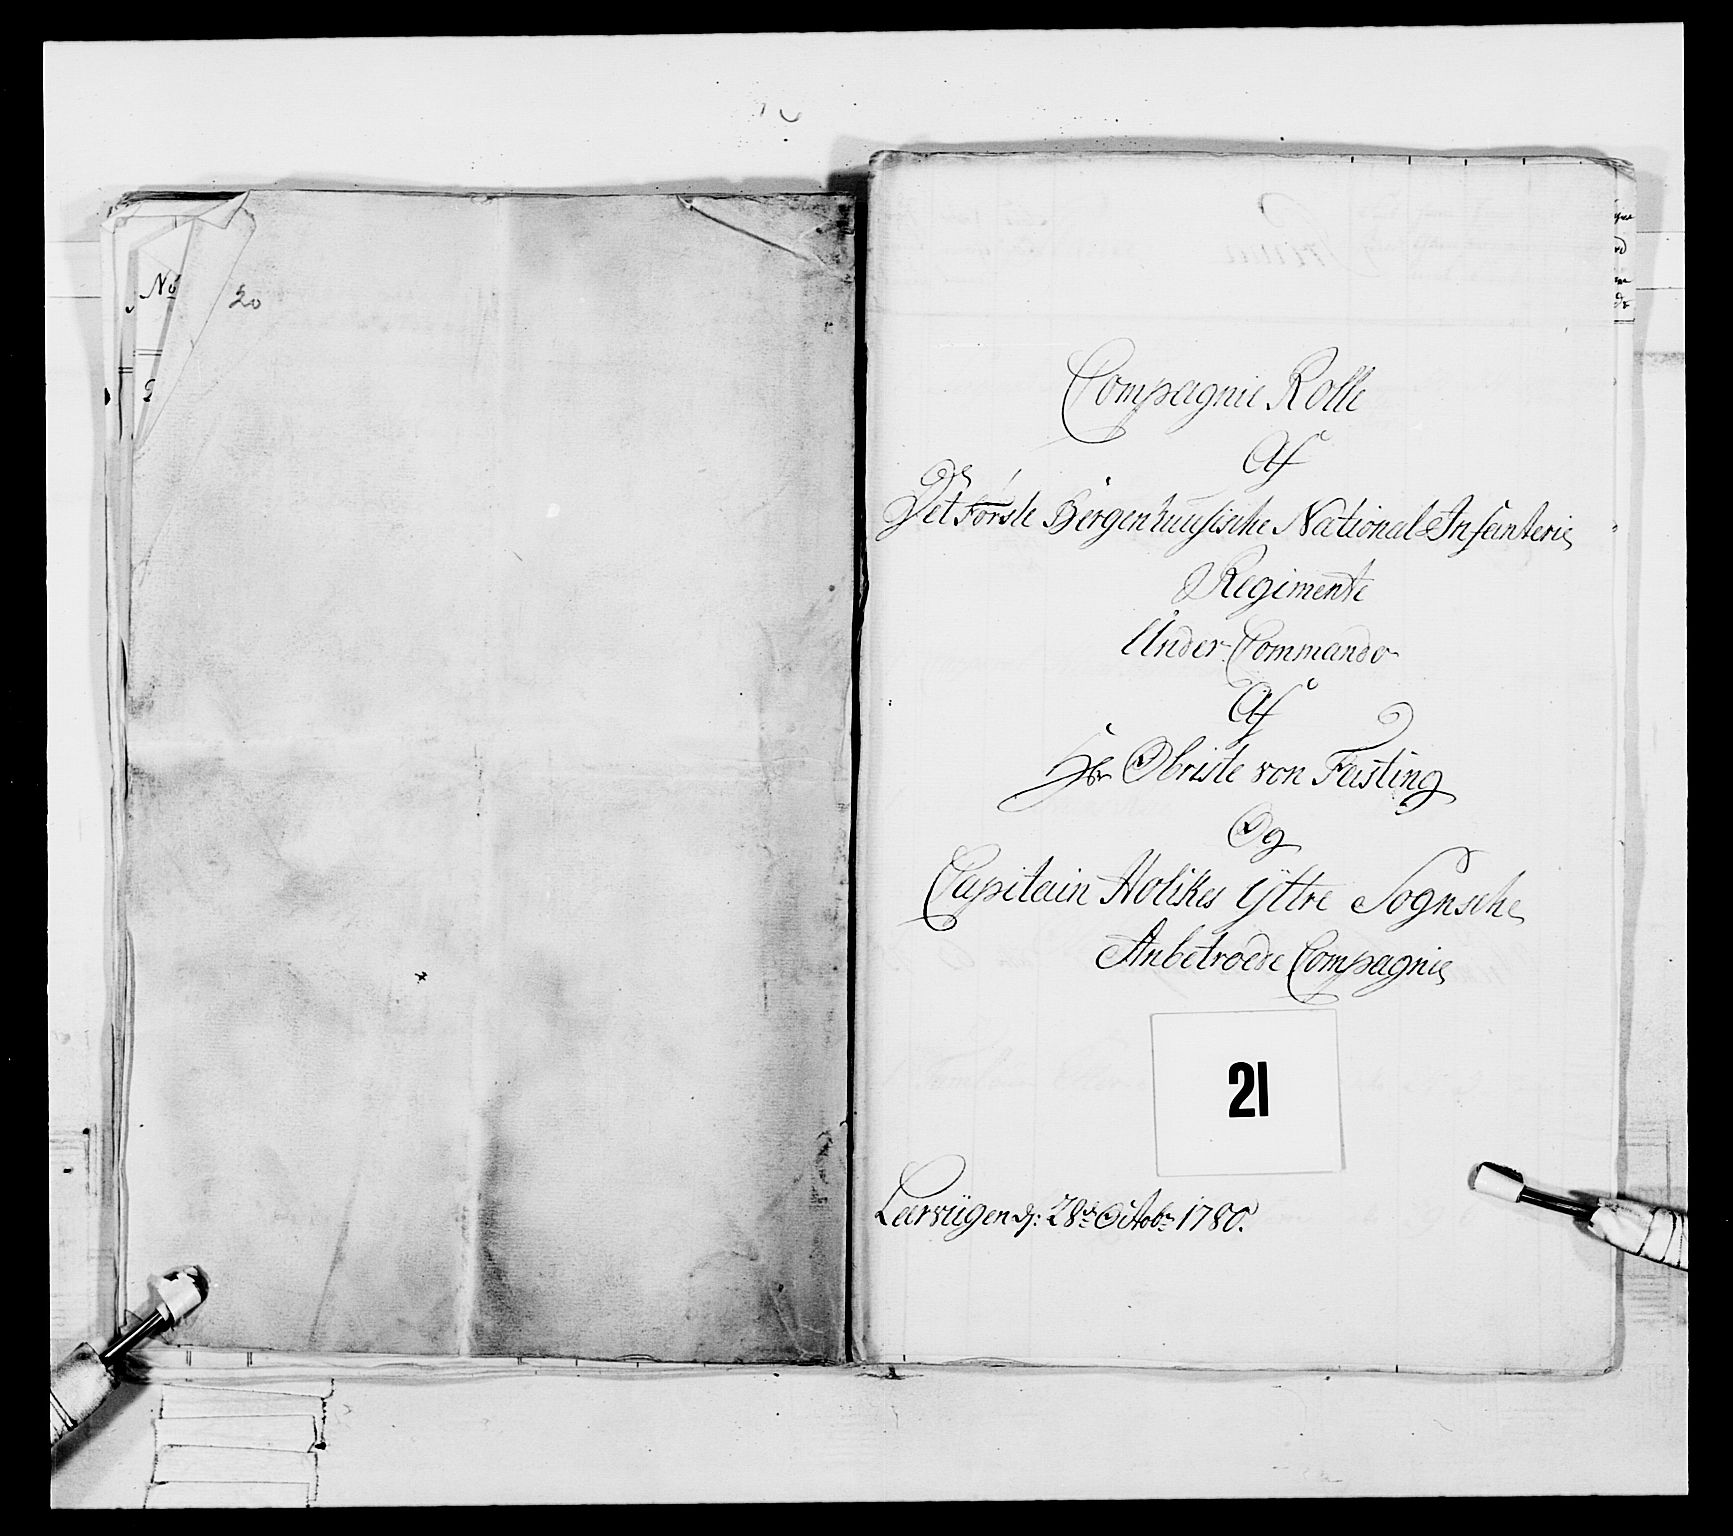 No
20
Compagnie Rolle
Af
Det Første Bergenhuusische National Infanterie
Regimente
Under Commando
Af
Hr Obriste von Fasting
Og
Capitain Holckes Yttre Sognsche
Anbetroede Compagnie
21
Leervügen d: 28de Octobr 1780.